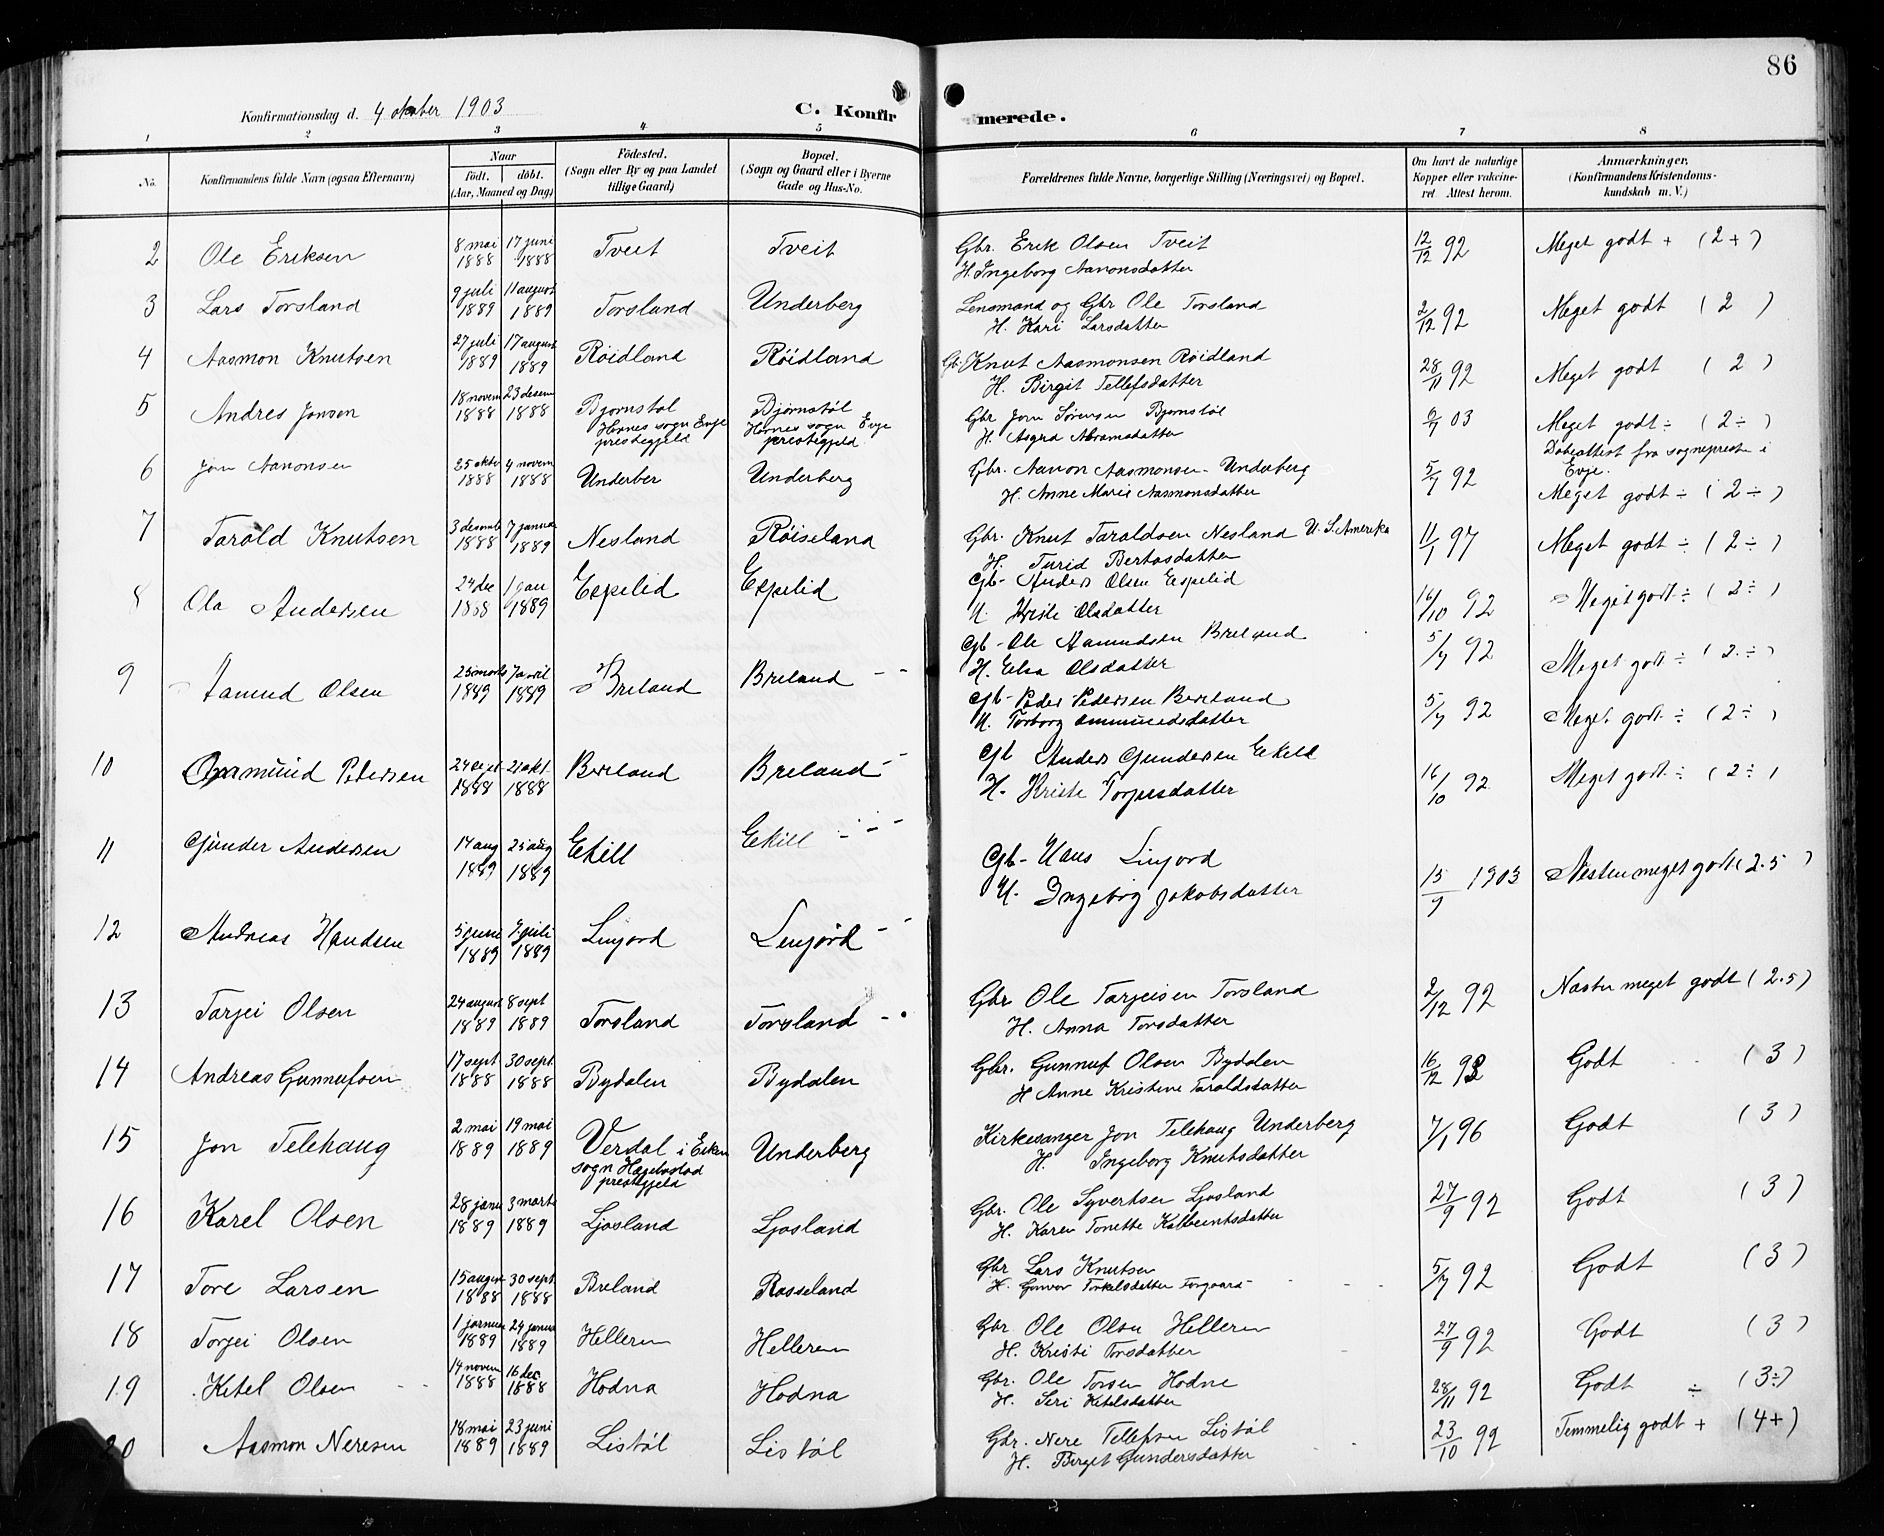 86
Konfirmationsdag d. 4 oktober 1903
C. Konfirmerede.
1 2 3 4 5 6 7 8
No.
Konfirmandens fulde Navn (ogsaa Efternavn)
Naar
født. døbt.
(Aar, Maaned og Dag)
Fødested.
(Sogn eller By og paa Landet
tillige Gaard)
Bopæl.
(Sogn og Gaard eller i Byerne
Gade og Hus-No.
Forældrenes fulde Navne, borgerlige Stilling (Næringsvei) og Bopæl.
Om havt de naturlige
Kopper eller vakcine-
ret. Attest herom.
Anmærkninger.
(Konfirmandens Kristendoms-
kundskab m. V.)
2 Ole Eriksen 8 mai 1888 17 juni 1888 Tveit Tveit Gbr. Erik Olsen Tveit 12/12 92 Meget godt + (2+)
H. Ingeborg Aanonsdatter
3 Lars Torsland 9 juli 1889 11 august 1889 Torsland Underberg Lensmand og Gbr Ole Torsland 2/12 92 Meget godt (2)
H. Kari Larsdatter
4 Aasmon Knutsen 27 juli 1889 17 august 1889 Røidland Røidland Gb. Knut Aasmonsen Røidland 28/11 92 Meget godt (2)
H. Birgit Tellefsdatter
5 Andres Jonsen 18 novem 1888 23 desem 1888 Bjornstøl Bjørnstøl Gbr Jorn Sørensen Bjornstøl 03 Meget godt ÷ (2÷)
Hornes sogn Evje prestegjeld Hornes sogn Evje prestegjeld H. Asgra Abramsdatter Dobsattest fra sogneprest i Evje.
6 Jon Aanonsen 25 oktr 1888 4 novem 1888 Underber Underberg Gbr. Aanon Aasmonsen Underberg 5/7 92 Meget godt ÷ (2÷)
H. Anne Marie Aasmonsdatter
7 Tarald Knutsen 3 desemb 1888 7 januar 1889 Nesland Røiseland Gbr. Knut Taraldsen Nesland U. S. Amerika 11/1 97 Meget godt ÷ (2÷)
H. Turid Bertosdatter
8 Ola Andersen 24 dec 1888 1 jan 1889 Espelid Espelid Gb- Anders Olsen Espelid 16/10 92 Meget godt ÷ (2÷)
H. Kriste Olsdatter
9 Aamund Olsen 25 marts 1889 7 april 1889 Breland Breland - - Gb- Ole Aamundsen Breland 5/7 92 Meget godt ÷ (2÷)
H. Elsa Olsdatter
10 Ommund Pedersen 24 sept 1888 21 okt. 1888 Breland Breland - Gb- Peder Pedersen Breland 5/7 92 Meget godt ÷ (2÷)
H. Torborg Ommundsdatter
11 Gunder Andersen 14 aug 1889 25 aug 1889 Ekill Ekill - - - Gb Anders Gundersen Ekill 16/10 92 Meget godt ÷ (2÷)
H. Kriste Torjusdatter
12 Andreas Hansen 5 juni 1889 7 juli 1889 Linjord Linjord - Gb- Hans Linjord 15/9 1903 Nesten meget godt (2.5)
H. Ingeborg Jakobsdatter
13 Tarjei Olsen 24 august 1889 8 sept 1889 Torsland Torsland - Gbr Ole Tarjeisen Torsland 2/12 92 Nasten meget godt (2.5)
H. Anna Torsdatter
14 Andreas Gunnufsen 17 sept. 1888 30 sept. 1888 Bydalen Bydalen Gbr. Gunnuf Olsen Bydalen 16/12 Godt (3)
H Anne Kristine Taraldsdatter
15 Jon Telehaug 2 mai 1889 19 mai 1889 Verdal i Eiken Underberg Kirkesanger Jon Telehaug Underberg 7/1 96 Godt (3)
sogn Hægebostad prestegjeld H. Ingeborg Knutsdatter
16 Karel Olsen 28 janu 1889 3 marts 1889 Ljosland Ljosland Gbr. Ole Syvertsen Ljosland 27/9 92 Godt (3)
H. Karen Tonette Kalbeintsdatter
17 Tore Larsen 15 august 1888 30 sept. 1888 Breland Rosseland Gbr Lars Knutsen 5/7 92 Godt (3)
H. Gunvor Torkelsdatter
18 Torjei Olsen 1 januar 1889 24 januar 1889 Helleren Helleren Gbr. Ole Olsen Helleren 27/9 92 Godt (3)
H. Kristi Torsdatter
19 Ketel Olsen 14 novem 1888 16 dec. 1888 Hodna Hodna Gbr. Ole Torsen Hodne 28/11 92 Godt ÷ (3÷)
H. Siri Ketelsdatter
20 Aasmon Neresen 18 mai 1889 23 juni 1889 Listøl Listøl Gbr. Nere Tellefsen Listøl 23/10 92 Temmelig godt + (4+)
H. Birget Gundersdatter